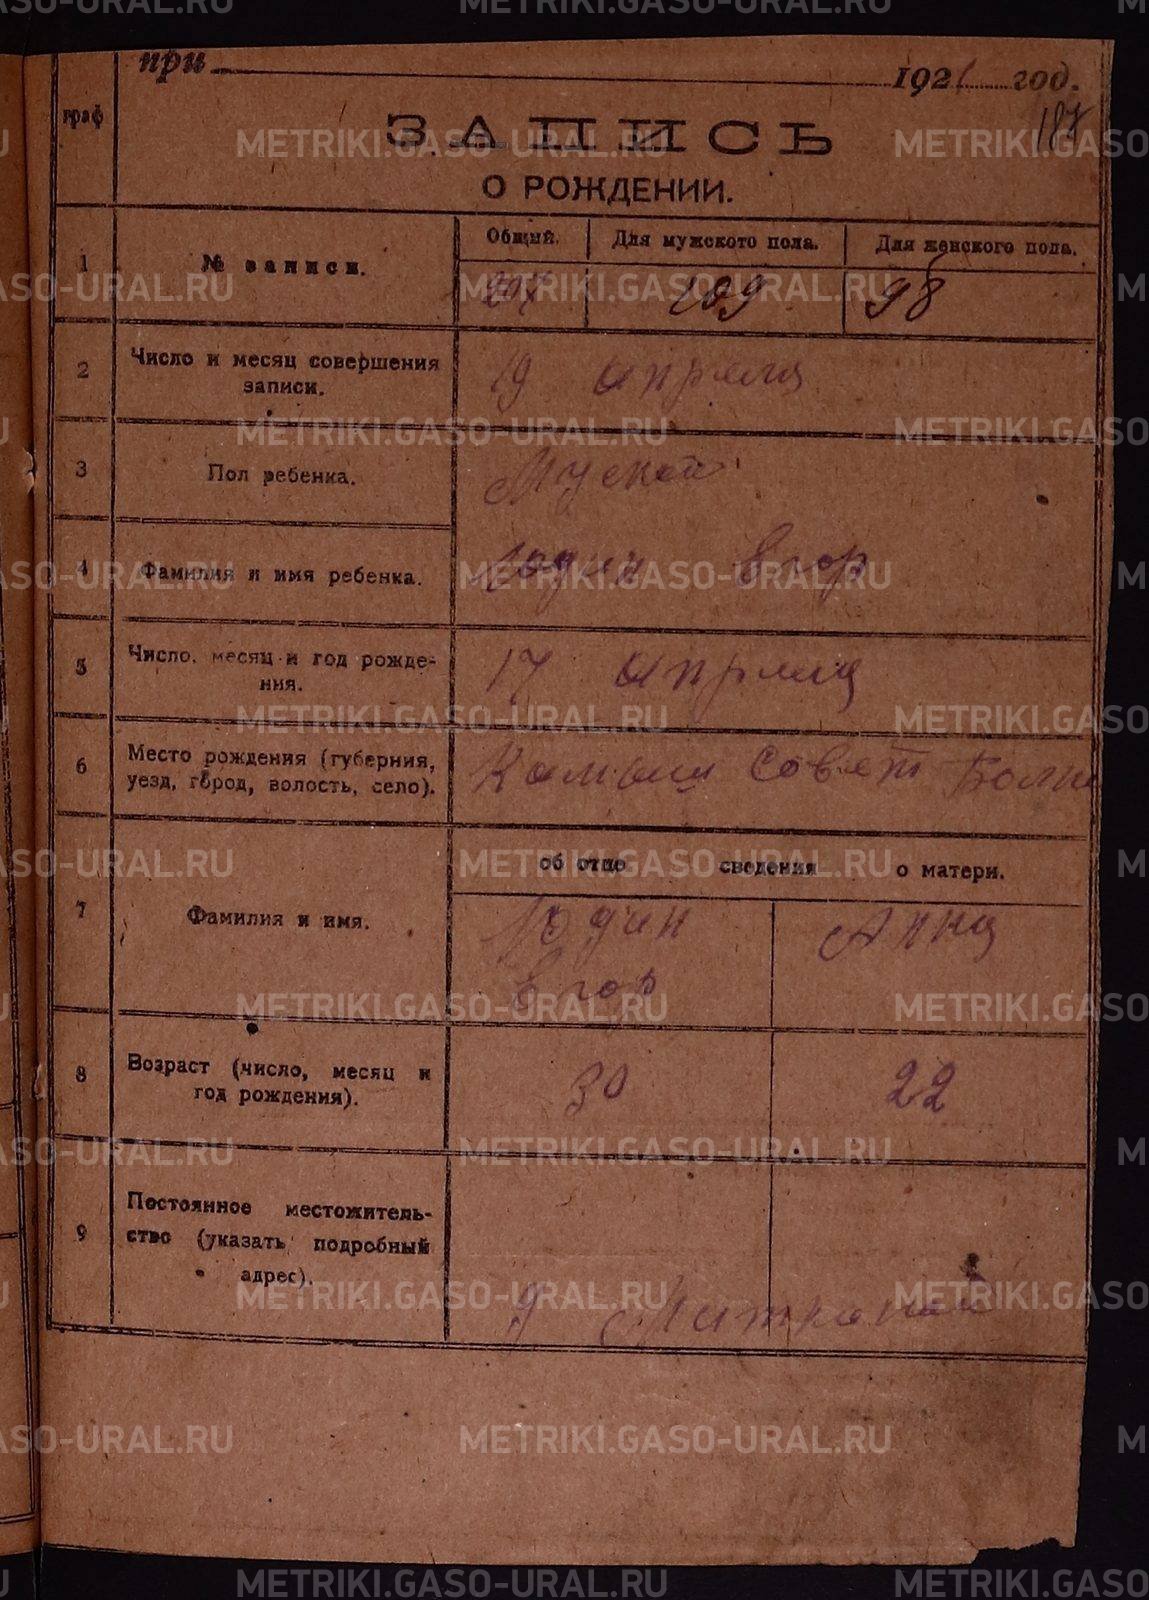 при 1921 год.
187
граф
ЗАПИСЬ
О РОЖДЕНИИ.
1 № записи. Общий. Для мужского пола. Для женского пола.
207 109 98
2 Число и месяц совершения записи. 19 апреля
3 Пол ребенка. Муской
4 Фамилия и имя ребенка. Юдин Егор
5 Число, месяц и год рождения. 17 апреля
6 Место рождения (губерния, уезд, город, волость, село). Камыш совет
об отце сведения о матери.
7 Фамилия и имя. Юдин Егор Анна
8 Возраст (число, месяц и год рождения). 30 22
9 Постоянное местожительство (указать подробный адрес).
METRIKI.GASO-URAL.RU